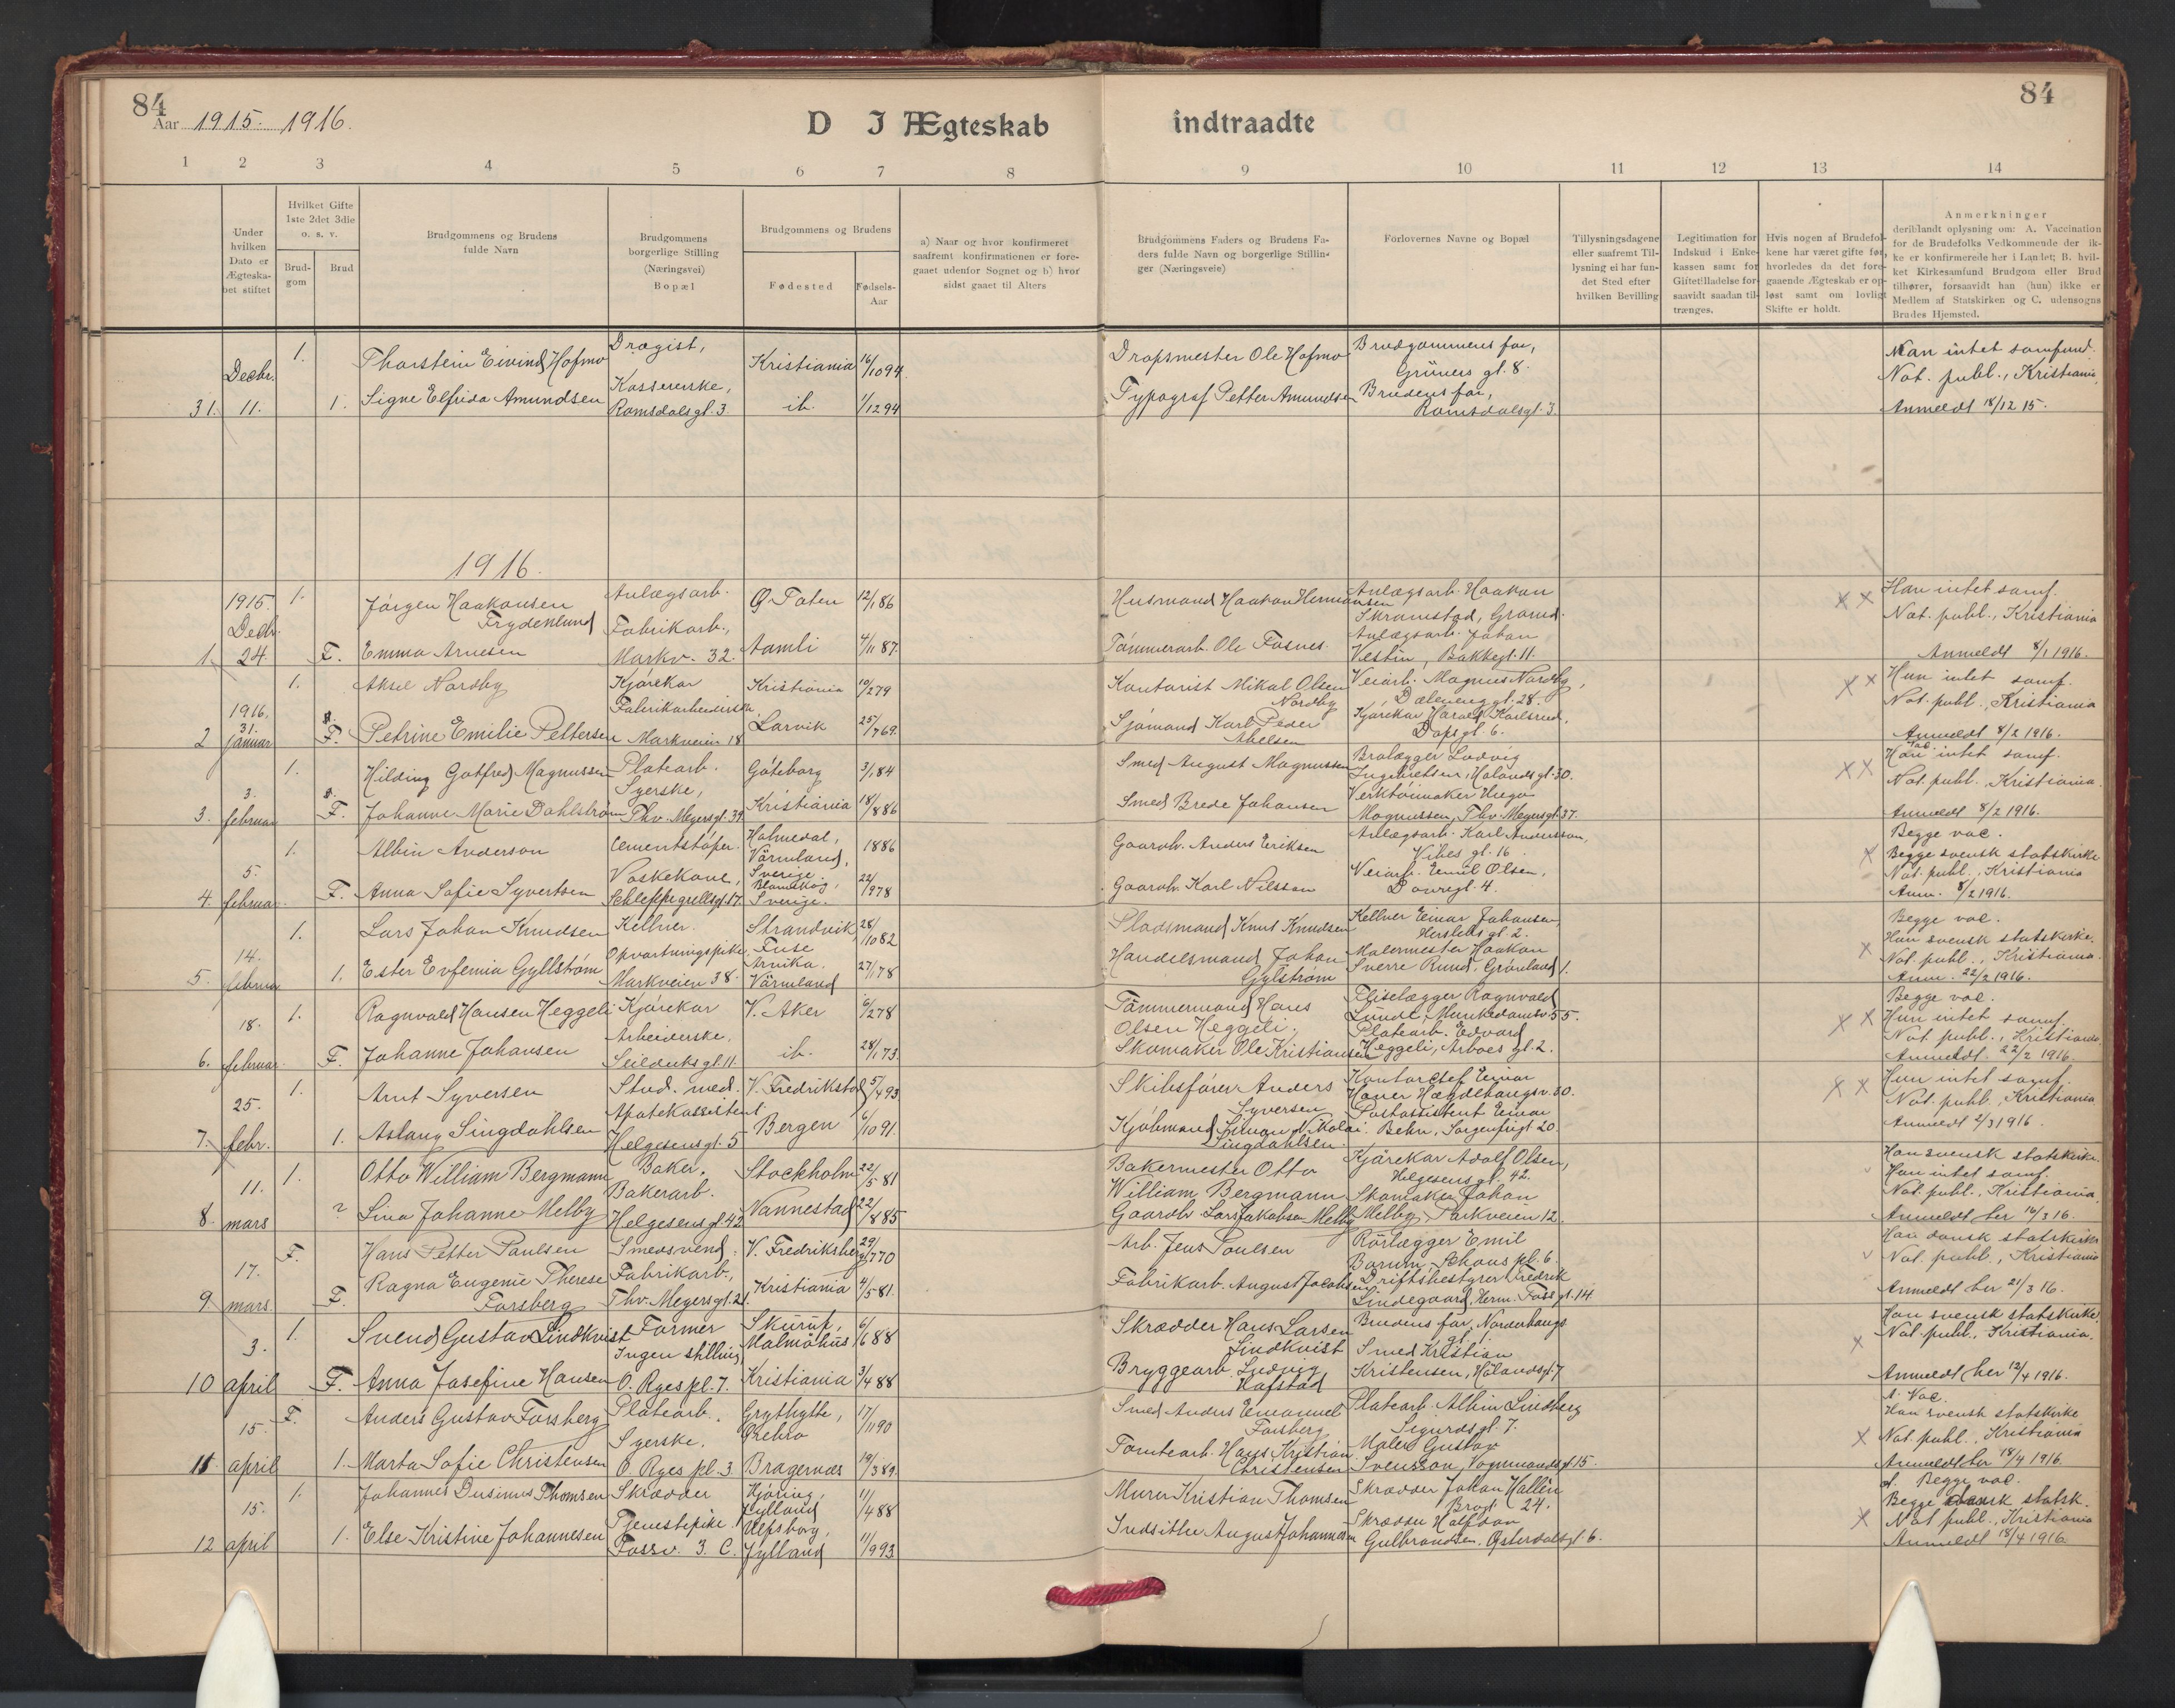 84
84
Aar 1915. 1916.
D I Ægteskab indtraadte
1 2 3 4 5 6 7 8 9 10 11 12 13 14
Under hvilken Dato er Ægteska-bet stiftet
Hvilket Gifte 1ste 2det 3die o. s. v.
Brud-gom
Brud
Brudgommens og Brudens fulde Navn
Brudgommens borgerlige Stilling (Næringsvei) Bopæl
Brudgommens og Brudens
Fødested
Fødsels-Aar
a) Naar og hvor konfirmeret saafremt konfirmationen er fore-gaaet udenfor Sognet og b) hvor sidst gaaet til Alters
Brudgommens Faders og Brudens Fa-ders fulde Navn og borgerlige Stillin-ger (Næringsveie)
Forlovernes Navne og Bopæl
Tillysningsdagene eller saafremt Til-lysning ei har fun-det Sted efter hvilken Bevilling
Legitimation for Indskud i Enke-kassen samt for Giftetilladelse for-saavidt saadan til-trænges.
Hvis nogen af Brudefol-kene har været gifte før, hvorledes da det fore-gaaende Ægteskab er op-løst samt om lovligt Skifte er holdt.
Anmerkninger deriblandt oplysning om: A. Vaccination for de Brudefolks Vedkommende der ik-ke er konfirmerede her i Landet; B. hvil-ket Kirkesamfund Brudgom eller Brud tilhører, forsaavidt han (hun) ikke er Medlem af Statskirken og C. udensogns Brudes Hjemsted.
31. Decbr. 11. 1. Thorstein Eivind Hofmo Drogist, Kristiania 16/10 94. Dropsmester Ole Hofmo Brudgommens far, Grüners gl. 8. Han intet samfund. Not. publ., Kristiania,
1. Signe Elfrida Amundsen Kassererske, Romsdalsgt. 3. ib. 1/12 94 Typograf Petter Amundsen Brudens far, Romsdalsgt. 3. Anmeldt 18/12 15.
1916.
1. 1915. Decbr. 24. 1. Jørgen Haakonsen Frydenlund Anlægsarb. Ø. Toten 12/1 86 Husmand Haakon Hermansen Anlægsarb. Haakon Skramstad, Grønd. Han intet samf. Not. publ., Kristiania
F. Emma Arnesen Fabrikarb., Markv. 32. Aamli 4/11 87. Tømmerarb. Ole Fosnes Anlægsarb. Johan Vestin, Bakkegt. 11. Anmeldt 8/1 1916.
2 1916. 31. januar 1. Aksel Nordby Kjørekar Kristiania 10/2 79 Kontorist Mikal Olsen Nordby Veiarb. Magnus Nordby, Dælenenggt. 28. Hun intet samf. Not. publ., Kristiania
F. Petrine Emilie Pettersen Fabrikarbeiderske, Markveien 18 Larvik 25/7 69. Sjømand Karl Peder Abelsen Kjørekar Harald Karlsrud, Dopsgt. 6. Anmeldt 8/2 1916.
3. 3. februar 1. Hilding Gotfred Magnussen Platearb. Göteborg 3/1 84 Smed August Magnussen Brolægger Ludvig Ingebretsen, Hølandsgt. 30. Han intet samf. Not. publ. Kristiania.
F. Johanne Marie Dahlstrøm Syerske, Thv. Meyersgt. 39. Kristiania 18/8 86 Smed Brede Johansen Verktøimaker Hugo Magnussen, Thv. Meyersgt. 37. Anmeldt 8/2 1916.
4. 5. februar 1. Albin Anderson Cementstøper. Holmedal, Värmland, Sverige. 1886 Gaardbr. Anders Eriksen Anlægsarb. Karl Andersson, Vibes gt. 16 Begge vac. Begge svensk statskirke
F. Anna Sofie Syvertsen Vaskekone, Schleppegrellsgt. 17. Sverige. 22/9 78 Gaardbr. Karl Nilsson Veiarb. Emil Olsen, Dovregt. 4. Not. publ., Kristiania Anm. 8/2 1916.
5. 14. februar 1. Lars Johan Knudsen Kellner. Strandvik, Fuse 28/10 82 Pladsmand Knut Knudsen Kellner Einar Johansen, Herslebs gt. 2. Begge vac. Hun svensk statskirke.
1. Ester Eufemia Gyllstrøm Opvartningspike, Markveien 38. Arvika. Värmland 27/1 78 Handelsmand Johan Gylstrøm Malermester Haakon Sverre Rund, Grønland 1. Not. publ., Kristiania. Anm. 22/2 1916.
6. 18. februar. 1. Ragnvald Hansen Heggeli Kjørekar V. Aker 6/2 78 Tømmermand Hans Olsen Heggeli. Fliselægger Ragnvald Lunde, Munkedamsv. 55. Begge vac. Hun intet samf.
F. Johanne Johansen Arbeiderske, Seilduksgt. 11. ib. 28/1 73. Skomaker Ole Kristiansen Platearb. Edvard Heggeli, Arboes gt. 2. Not. publ., Kristiania. Anmeldt. 22/2 1916.
7. 25. febr. 1. Arnt Syversen Stud. med. V. Fredrikstad 5/4 93 Skibsfører Anders Syversen Kontorchef Einar Hauer Hægdehaugsv. 30. Hun intet samf. Not. publ., Kristiania
1. Aslaug Singdahlsen Apotekassistent Helgesensgt. 5 Bergen 6/10 91. Kjøbmand Simon Nikolai Singdahlsen. Postassistent Einar Behn, Sorgenfrigt 20. Anmeldt 2/3 1916.
8. 11. mars 1. Otto William Bergmann Baker. Stockholm 22/5 81 Bakermester Otto William Bergmann Kjørekar Adolf Olsen, Helgesens gt. 42. Han svensk statskirke. Hun intet samf.
? Lina Johanne Melby Bakerarb. Helgesensgt. 42 Vannestad 22/8 85 Gaardbr. Lars Jakobsen Melby Skomaker Johan Melby, Parkveien 12. Not. publ., Kristiania, Anmeldt her 16/3 16.
9. 17. mars. F. Hans Petter Paulsen Smedsvend. V. Fredriksberg 29/7 70 Arb. Jens Poulsen Rørlægger Emil Borum, Schous pl. 6. Han dansk statskirke Not. publ., Kristiania
F. Ragna Eugenie Therese Forsberg Fabrikarb., Thv. Meyersgt. 21. Kristiania 4/5 81. Fabrikarb. August Jacobsen Driftsbestyrer Fredrik Lindegaard, Herm. Foss gt. 14. Anmeldt her 21/3 16.
10 3. april 1. Svend Gustav Lindkvist Farmer Skurup, Malmöhus 6/6 88 Skrædder Hans Larsen Lindkvist Brudens far, Norderhaugsgt. 1. Han svensk statskirke. Not. publ., Kristiania.
F. Anna Josefine Hansen Ingen stilling, O. Ryes pl. 7. Kristiania 3/4 88 Bryggearb. Ludvig Hafstad Smed Kristian Kristensen, Hølandsgt. 7 Anmeldt her 12/4 1916.
11. 15. april F. Anders Gustav Forsberg Platearb. Grythytte, Ørebro 17/11 90 Smed Anders Emanuel Forsberg Platearb. Albin Lindberg Sigurdsgt. 7. A. Vac. Han svensk statskirke
1. Marta Sofie Christensen Syerske. O. Ryes pl. 3. Bragernæs 19/3 89. Tomtearb. Hans Kristian Christensen Maler Gustav Svensson, Vognmandsgt. 15. Not. publ., Kristiania Anmeldt her 18/4 1916.
12 15. april 1. Johannes Dusinus Thomsen Skrædder Hjøring, Jylland 11/4 88 Murer Kristian Thomsen Skrædder Johan Hallén Brogt. 24. A. Begge vac. Begge dansk statsk.
1. Else Kristine Johannesen Tjenestepike. Fossv. 3. C. Ulfsborg, Jylland 11/9 93. Indsidder August Johannesen Skrædder Halfdan Gulbrandsen. Østerdalsgt 6. Not. publ., Kristiania Anmeldt 18/4 1916.